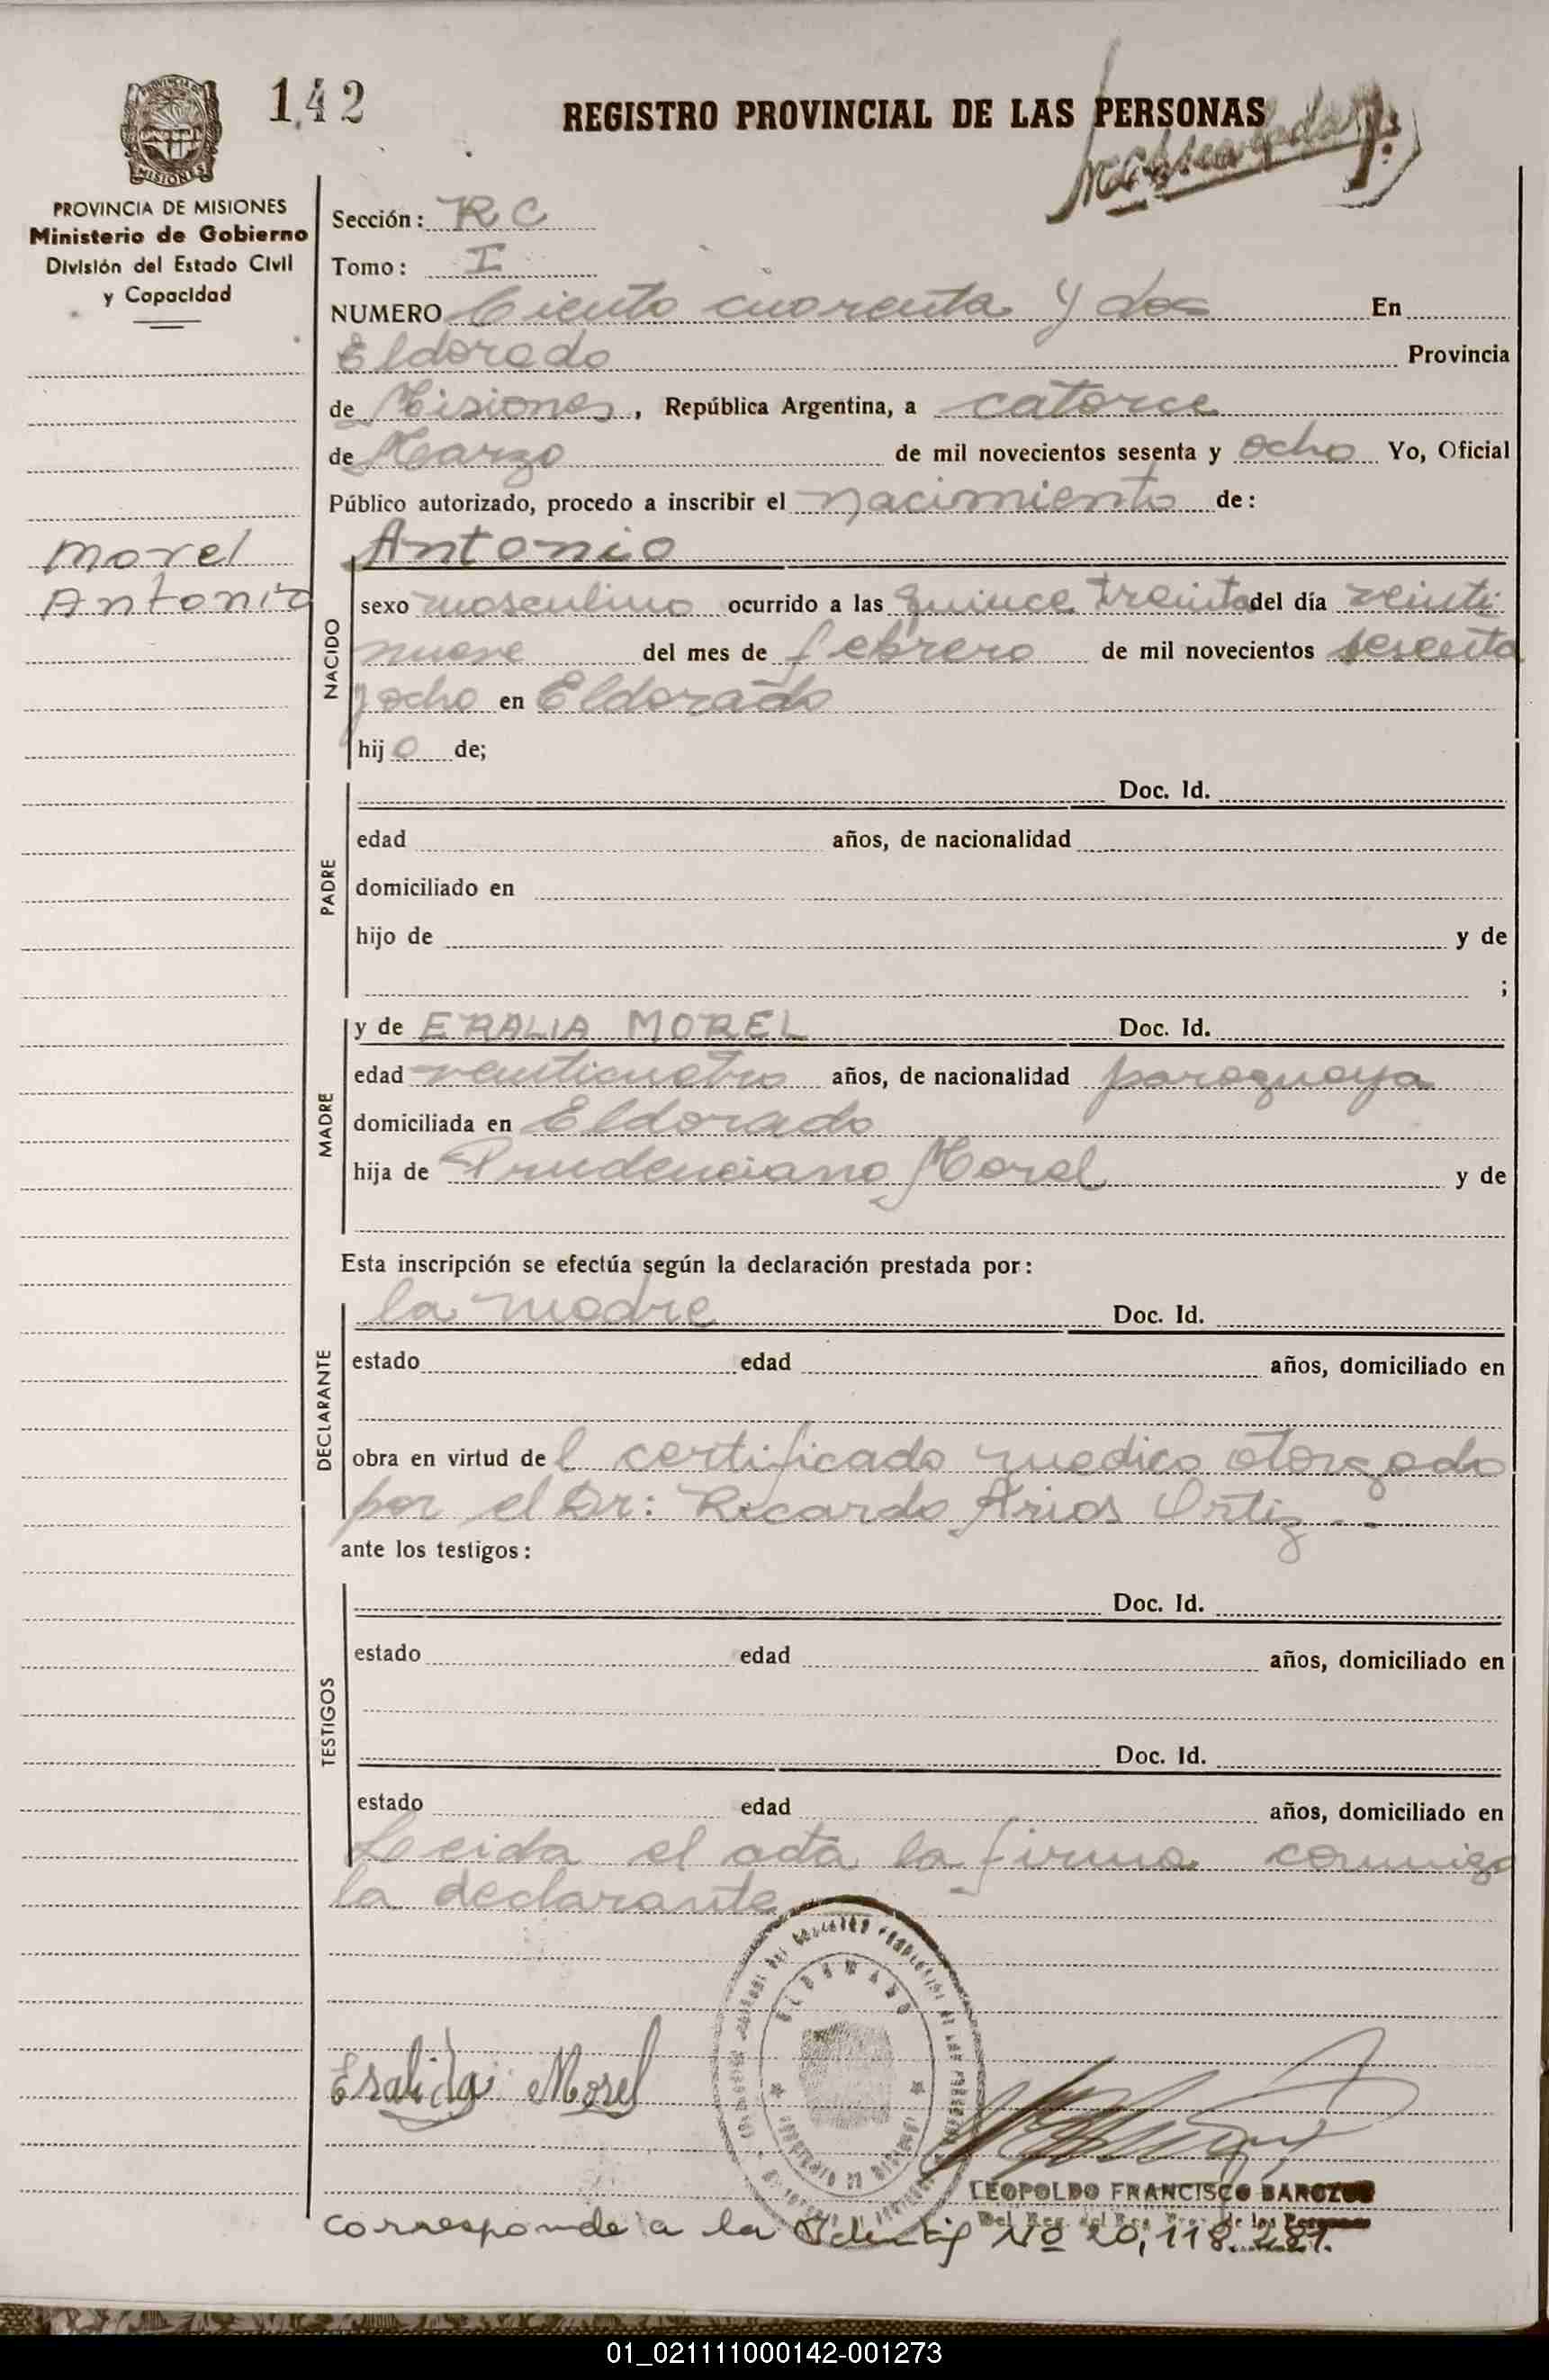 142
REGISTRO PROVINCIAL DE LAS PERSONAS
PROVINCIA DE MISIONES
Ministerio de Gobierno
División del Estado Civil
y Capacidad
Sección: RC
Tomo: I
NUMERO Ciento cuarenta y dos En
Eldorado Provincia
de Misiones, República Argentina, a catorce
de Marzo de mil novecientos sesenta y ocho Yo, Oficial
Público autorizado, procedo a inscribir el nacimiento de:
Morel
Antonio
NACIDO
Antonio
sexo masculino ocurrido a las quince treinta del día veinti
nueve del mes de febrero de mil novecientos sesenta
y ocho en Eldorado
hijo de;
PADRE
Doc. Id.
edad años, de nacionalidad
domiciliado en
hijo de y de
;
MADRE
y de ERALIA MOREL Doc. Id.
edad veinticuatro años, de nacionalidad paraguaya
domiciliada en Eldorado
hija de Prudenciano Morel y de
Esta inscripción se efectúa según la declaración prestada por:
DECLARANTE
la madre Doc. Id.
estado edad años, domiciliado en
obra en virtud del certificado medico otorgado
por el Dr: Ricardo Arios Ortiz --
ante los testigos:
TESTIGOS
Doc. Id.
estado edad años, domiciliado en
Doc. Id.
estado edad años, domiciliado en
Leida el acta la firma conmigo
la declarante
ELDORADO
Eralida Morel
LEOPOLDO FRANCISCO
corresponde a la Identif Nº 20,118.
01_021111000142-001273